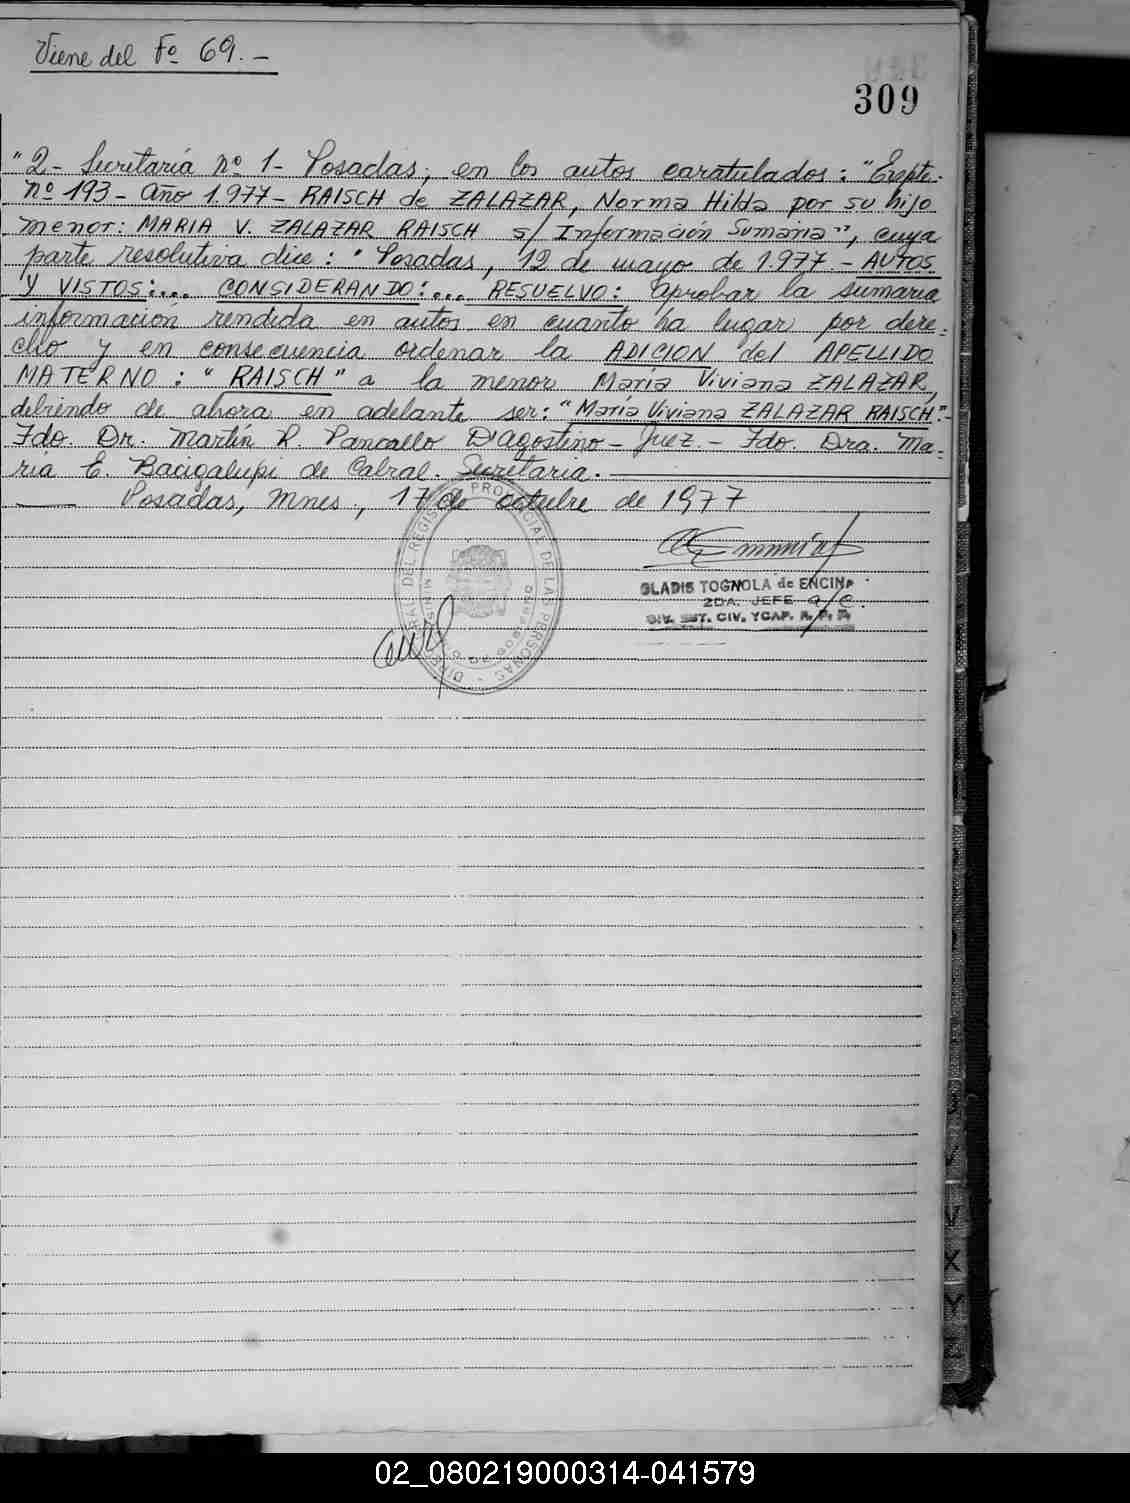 Viene del Fº 69.-
309
"2- Secretaría nº 1- Posadas, en los autos caratulados: "Expte.
nº 193- Año 1.977- RAISCH de ZALAZAR, Norma Hilda por su hijo
menor: MARIA V. ZALAZAR RAISCH s/ Información Sumaria", cuya
parte resolutiva dice: "Posadas, 12 de mayo de 1.977.- AUTOS
Y VISTOS:... CONSIDERANDO:... RESUELVO: aprobar la sumaria
información rendida en autos en cuanto ha lugar por dere-
cho y en consecuencia ordenar la ADICION del APELLIDO
MATERNO: "RAISCH" a la menor María Viviana ZALAZAR,
debiendo de ahora en adelante ser: "María Viviana ZALAZAR RAISCH".-
Fdo. Dr. Martín R. D'agostino- Juez.- Fdo. Dra. Ma-
ría E. Bacigalupi de Cabral. Secretaria.
Posadas, Mnes, 17 de octubre de 1977
REGISTRO PROVINCIAL DE LAS PERSONAS
GLADIS TOGNOLA de ENCINA
2DA. JEFE a/c.
DIV. EST. CIV. YCAP. R. P. P.
02_080219000314-041579